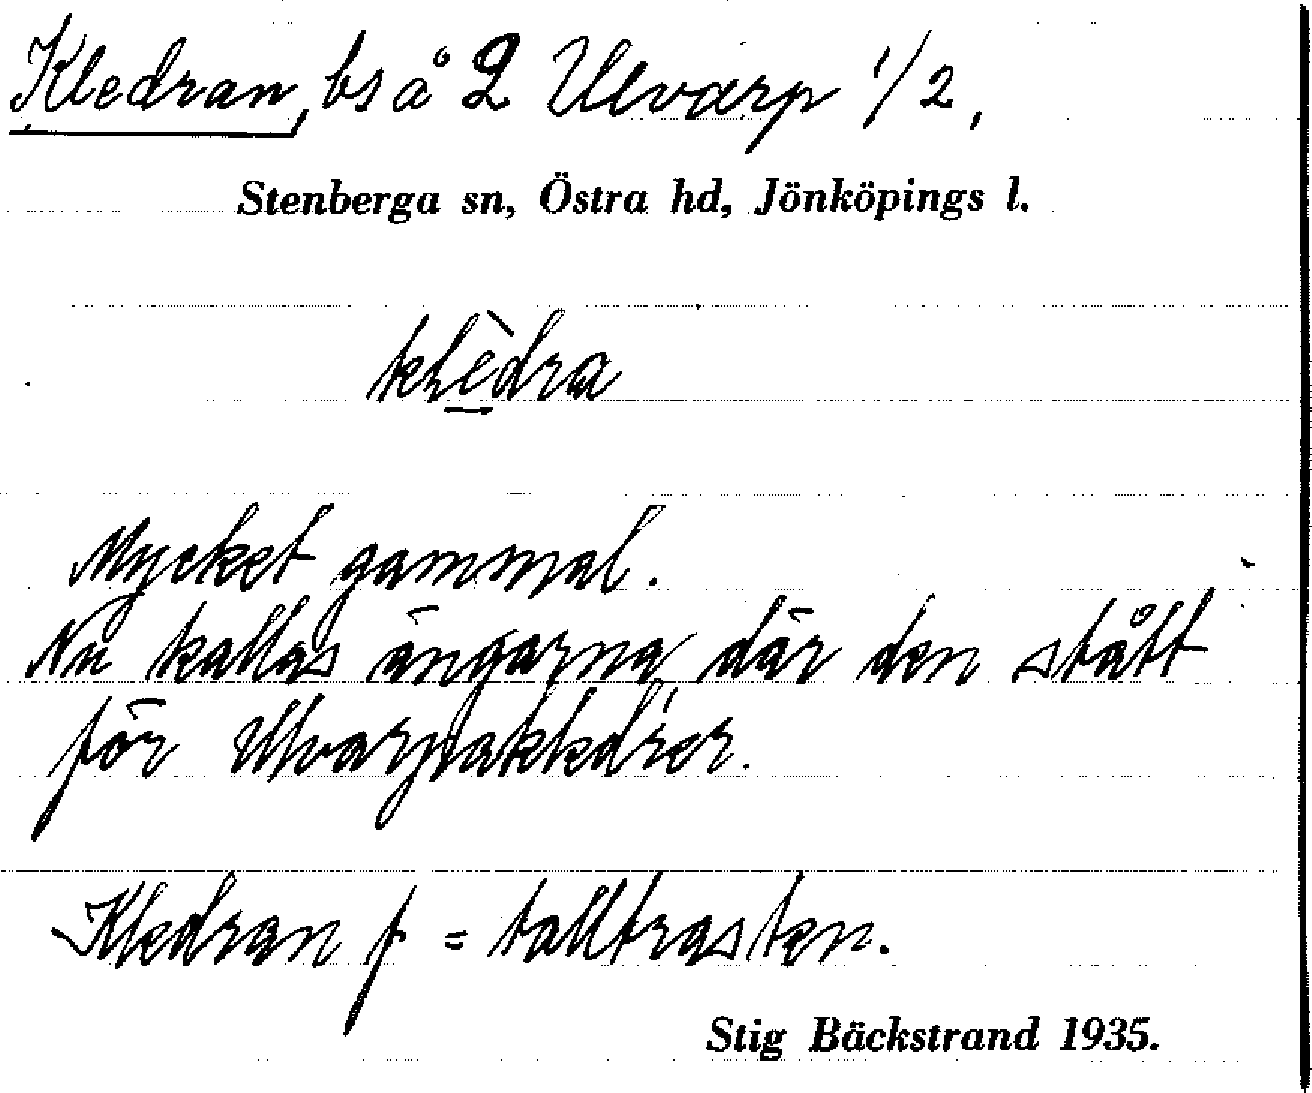 Kledran, bs å 2 Ulvarp 1/2,
Stenberga sn, Östra hd, Jönköpings l.
klèdra
Mycket gammal.
Nu kallas ängarna där den stått
för
Kledran f = talltrasten.
Stig Bäckstrand 1935.